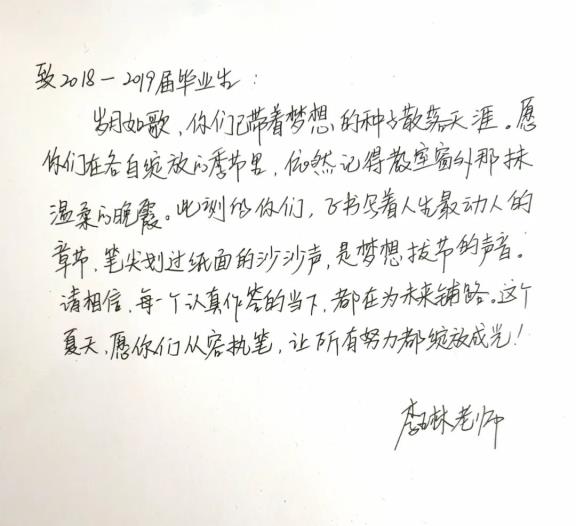 致2018－2019届毕业生：
岁月如歌，你们已带着梦想的种子散落天涯。愿
你们在各自绽放的季节里，依然记得教室窗外那抹
温柔的晚霞。此刻的你们，正书写着人生最动人的
章节，笔尖划过纸面的沙沙声，是梦想拔节的声音。
请相信，每一个认真作答的当下，都在为未来铺路。这个
夏天，愿你们从容执笔，让所有努力都绽放成光！
李林老师